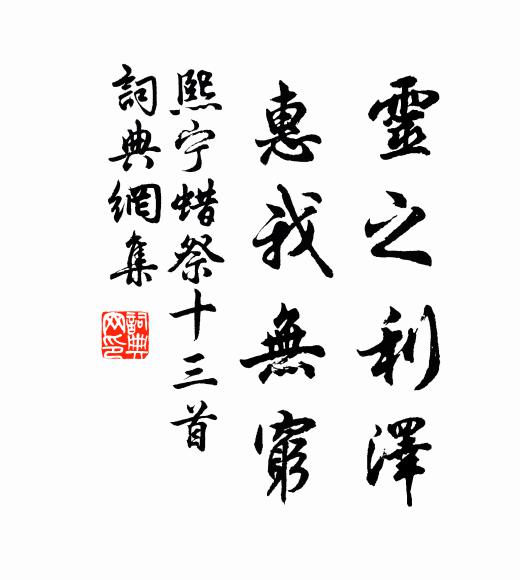 靈之利澤
惠我無窮
熙宁蜡祭十三首
詞典網集
詞典网印